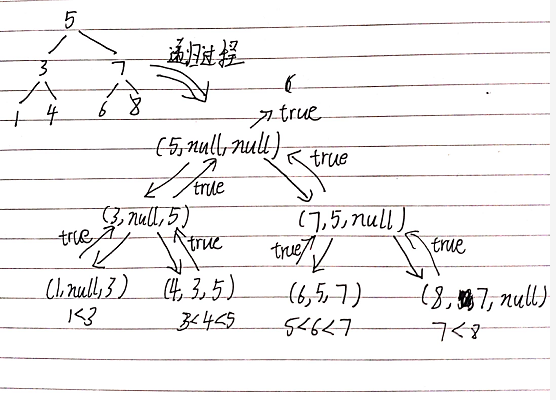 5
3 7 递归过程
1 4 6 8
true
(5,null,null)
true true
(3,null,5) (7,5,null)
true true true true
(1,null,3) (4,3,5) (6,5,7) (8,7,null)
1<3 3<4<5 5<6<7 7<8